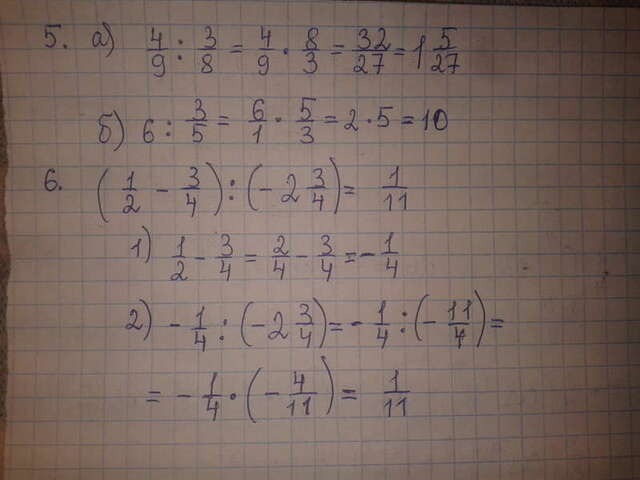 5. а) 4/9 : 3/8 = 4/9 · 8/3 = 32/27 = 1 5/27
б) 6 : 3/5 = 6/1 · 5/3 = 2 · 5 = 10
6. (1/2 - 3/4) : (-2 3/4) = 1/11
1) 1/2 - 3/4 = 2/4 - 3/4 = -1/4
2) -1/4 : (-2 3/4) = -1/4 : (-11/4) =
= -1/4 · (-4/11) = 1/11